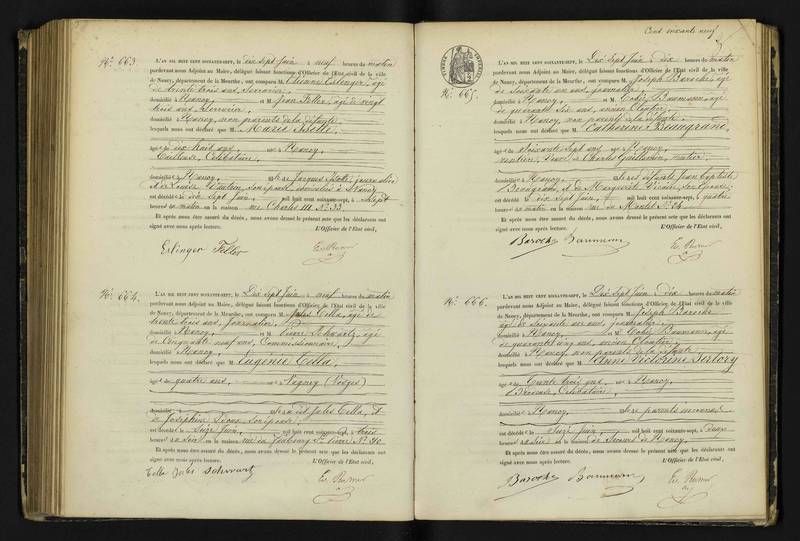 Cent soixante neuf
No. 663
L'AN MIL HUIT CENT SOIXANTE-SEPT, le dix Sept Juin à neuf heures du matin
pardevant nous Adjoint au Maire, délégué faisant fonctions d'Officier de l'Etat civil de la ville
de Nancy, département de la Meurthe, ont comparu M. Etienne Erlinger, âgé
de trente trois ans, Serrurier,
domicilié à Nancy, et M. Jean Feller, âgé de vingt
trois ans, Serrurier,
domicilié à Nancy, non parents de la défunte,
lesquels nous ont déclaré que M. Marie
âgée de dix huit ans, née à Nancy,
Tailleuse, Célibataire,
domiciliée à Nancy, fille de Jacques journalier
et de Louise son épouse, domiciliés à Nancy
est décédée le dix Sept Juin, mil huit cent soixante-sept, à Sept
heures du matin en la maison rue Charles III No. 33.
Et après nous être assuré du décès, nous avons dressé le présent acte que les déclarants ont
signé avec nous après lecture.
L'Officier de l'Etat civil,
Erlinger Feller
No. 664.
L'AN MIL HUIT CENT SOIXANTE-SEPT, le Dix Sept Juin à neuf heures du matin
pardevant nous Adjoint au Maire, délégué faisant fonctions d'Officier de l'Etat civil de la ville
de Nancy, département de la Meurthe, ont comparu M. Jules Cella, âgé de
trente trois ans, Journalier,
domicilié à Nancy, et M. Pierre Schwartz, âgé
de Cinquante neuf ans, Commissionnaire,
domicilié à Nancy,
lesquels nous ont déclaré que M. Eugénie Cella,
âgée de quatre ans, née à Vagney (Vosges)
domiciliée à fille de Jules Cella, et
de Joséphine son épouse,
est décédée le Seize Juin, mil huit cent soixante-sept, à trois
heures du soir en la maison rue du faubourg St. Pierre No.
Et après nous être assuré du décès, nous avons dressé le présent acte que les déclarants ont
signé avec nous après lecture.
L'Officier de l'Etat civil,
Cella Jules Schwartz
No. 665.
L'AN MIL HUIT CENT SOIXANTE-SEPT, le Dix Sept Juin à dix heures du matin
pardevant nous Adjoint au Maire, délégué faisant fonctions d'Officier de l'Etat civil de la ville
de Nancy, département de la Meurthe, ont comparu M. Joseph Baroche, âgé
de Soixante un ans, journalier,
domicilié à Nancy, et M. Baumann, âgé
de quarante six ans, ancien Cloutier,
domicilié à Nancy, non parents de la défunte,
lesquels nous ont déclaré que M. Catherine Beaugrand,
âgée de Soixante Sept ans, née à Nancy,
rentière, Veuve de Charles Guillaumin, rentier,
domiciliée à Nancy, fille des défunts Jean Baptiste
Beaugrand, et de Marguerite son épouse,
est décédée le dix Sept Juin, mil huit cent soixante-sept, à quatre
heures du matin en la maison rue du No. 34.
Et après nous être assuré du décès, nous avons dressé le présent acte que les déclarants ont
signé avec nous après lecture.
L'Officier de l'Etat civil,
Baroche Baumann
No. 666.
L'AN MIL HUIT CENT SOIXANTE-SEPT, le Dix Sept Juin à dix heures du matin
pardevant nous Adjoint au Maire, délégué faisant fonctions d'Officier de l'Etat civil de la ville
de Nancy, département de la Meurthe, ont comparu M. Joseph Baroche
âgé de Soixante un ans, journalier,
domicilié à Nancy, et M. Baumann, âgé
de quarante cinq ans, ancien Cloutier,
domicilié à Nancy, non parents de la défunte,
lesquels nous ont déclaré que M. Anne Victorine Sertory
âgée de Trente trois ans, née à Nancy,
Brodeuse, Célibataire,
domiciliée à Nancy, fille de parents inconnus
est décédée le Seize Juin, mil huit cent soixante-sept, à Deux
heures du soir en la maison de Secours de Nancy.
Et après nous être assuré du décès, nous avons dressé le présent acte que les déclarants ont
signé avec nous après lecture.
L'Officier de l'Etat civil,
Baroche Baumann